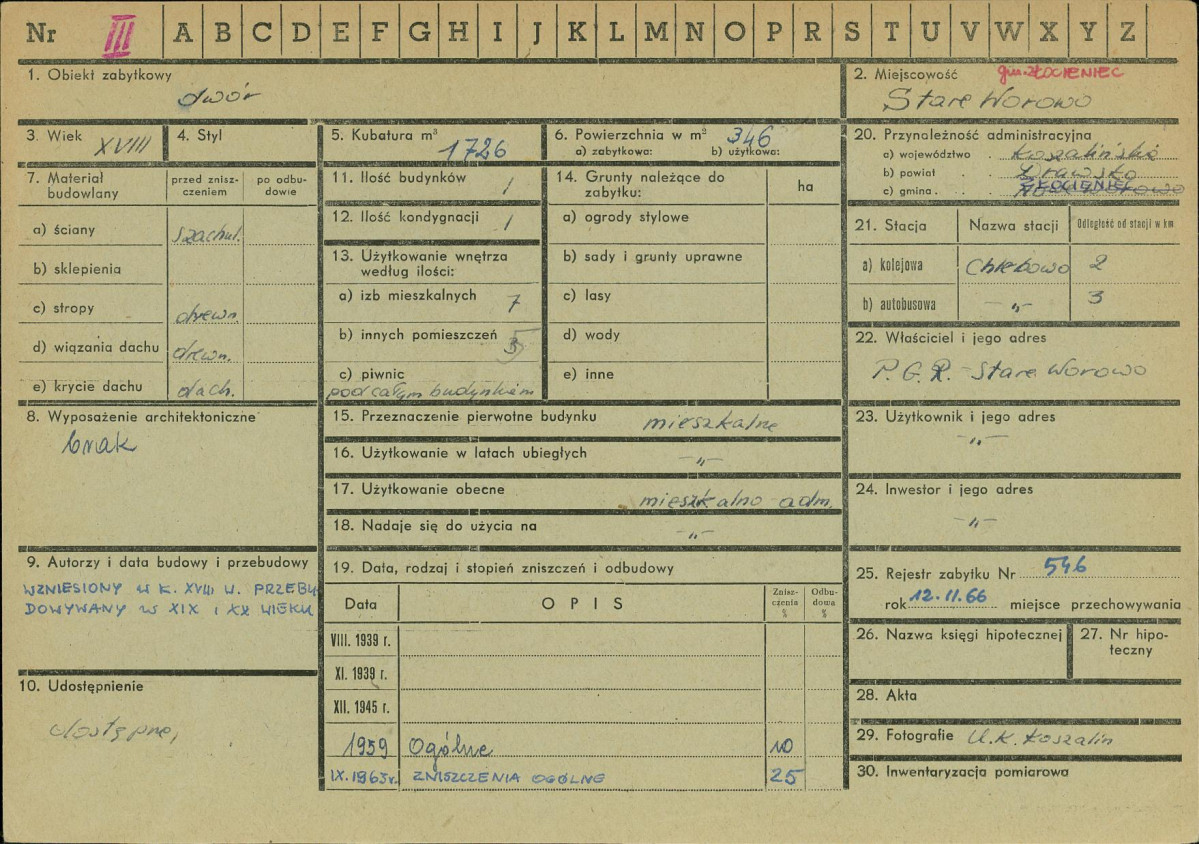 Nr III A B C D E F G H I J K L M N O P R S T U V W X Y Z
1. Obiekt zabytkowy
dwór
2. Miejscowość gm. ZŁOCIENIEC
Stare Worowo
3. Wiek XVIII
4. Styl
5. Kubatura m³ 1726
6. Powierzchnia w m² 346
a) zabytkowa: b) użytkowa:
7. Materiał budowlany
przed znisz-
czeniem
po odbu-
dowie
a) ściany szachul.
b) sklepienia
c) stropy drewn.
d) wiązania dachu drewn.
e) krycie dachu dach.
8. Wyposażenie architektoniczne
brak
9. Autorzy i data budowy i przebudowy
WZNIESIONY W K. XVIII W. PRZEBU
DOWYWANY W XIX I XX WIEKU
10. Udostępnienie
dostępne,
11. Ilość budynków 1
12. Ilość kondygnacji 1
13. Użytkowanie wnętrza
według ilości:
a) izb mieszkalnych 7
b) innych pomieszczeń
c) piwnic
pod całym budynkiem
14. Grunty należące do
zabytku:
ha
a) ogrody stylowe
b) sady i grunty uprawne
c) lasy
d) wody
e) inne
15. Przeznaczenie pierwotne budynku mieszkalne
16. Użytkowanie w latach ubiegłych -"-
17. Użytkowanie obecne mieszkalno adm.
18. Nadaje się do użycia na -"-
19. Data, rodzaj i stopień zniszczeń i odbudowy
Data OPIS
Znisz-
czenia
%
Odbu-
dowa
%
VIII. 1939 r.
XI. 1939 r.
XII. 1945 r.
1959 Ogólne 10
IX.1963r. ZNISZCZENIA OGÓLNE 25
20. Przynależność administracyjna
a) województwo . Koszalińskie
b) powiat . . Drawsko
c) gmina . . . ZŁOCIENIEC
21. Stacja
Nazwa stacji
Odległość od stacji w km
a) kolejowa Chlebowo 2
b) autobusowa -"- 3
22. Właściciel i jego adres
P.G.R. - Stare Worowo
23. Użytkownik i jego adres
-"-
24. Inwestor i jego adres
-"-
25. Rejestr zabytku Nr 546
rok 12.11.66 miejsce przechowywania
26. Nazwa księgi hipotecznej
27. Nr hipo-
teczny
28. Akta
29. Fotografie U.K. Koszalin
30. Inwentaryzacja pomiarowa